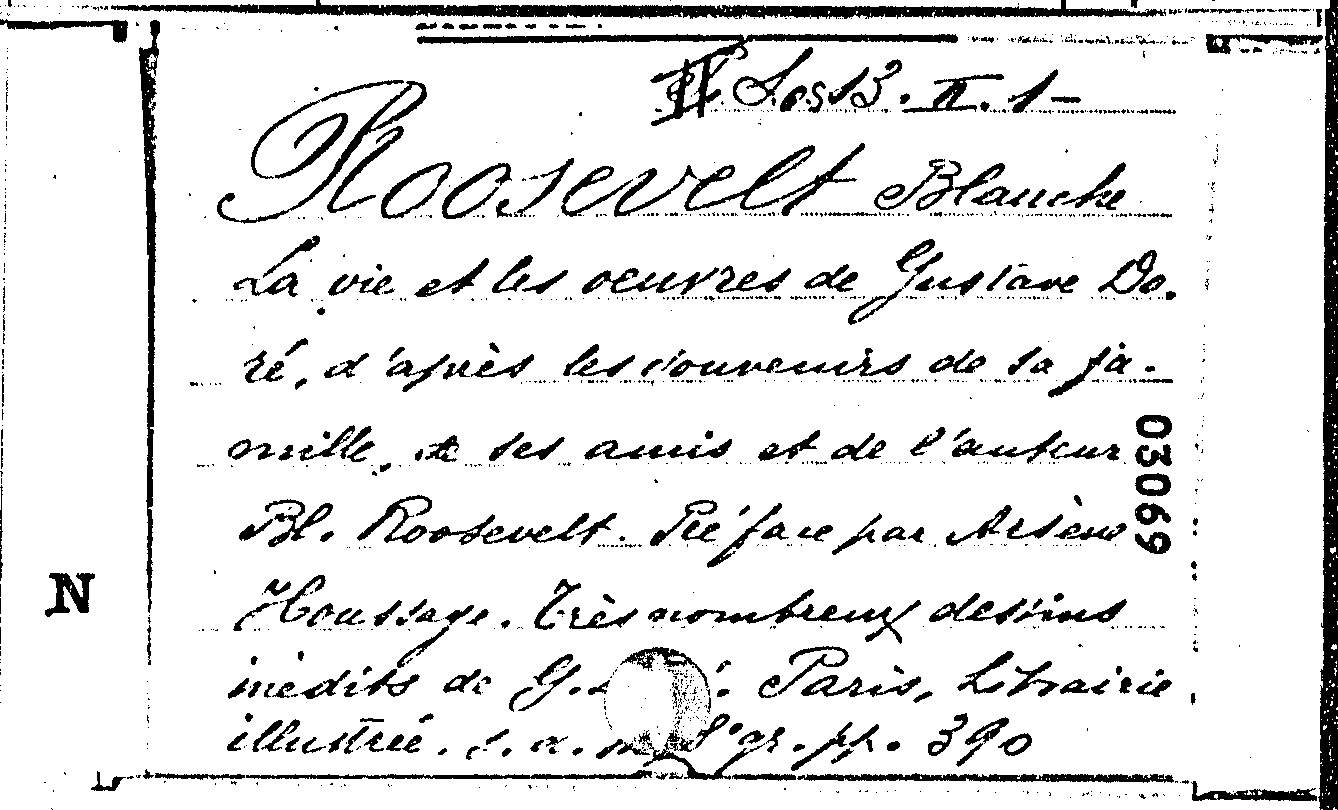 13. II. 1-
Roosevelt Blanche
La vie et les oeuvres de Gustave Do.
ré, d'après les souvenirs de sa fa.
mille, de ses amis et de l'auteur
03069
Bl. Roosevelt. Préface par Arsène
N
Houssaye. Très nombreux dessins
inédits de G. Paris, Librairie
illustrée. s. a. 8° gr. pp. 390